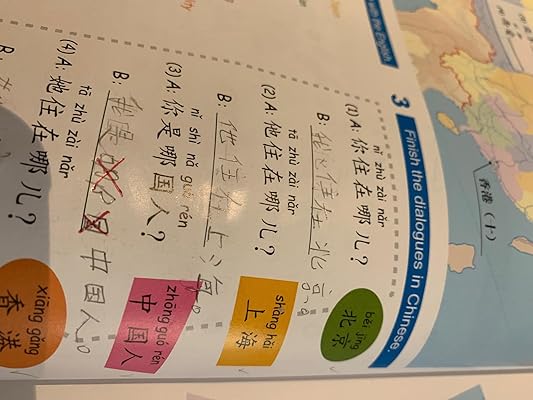 with the English
3 Finish the dialogues in Chinese.
nǐ zhù zài nǎr
(1) A: 你住在哪儿?
B: 我住在北京。
běi jīng
北京
tā zhù zài nǎr
(2) A: 他住在哪儿?
B: 他住在上海。
shàng hǎi
上海
nǐ shì nǎ guó rén
(3) A: 你是哪国人?
B: 我是中国人。
zhōng guó rén
中国人
tā zhù zài nǎr
(4) A: 她住在哪儿?
B:
xiāng gǎng
香港
香港(十)